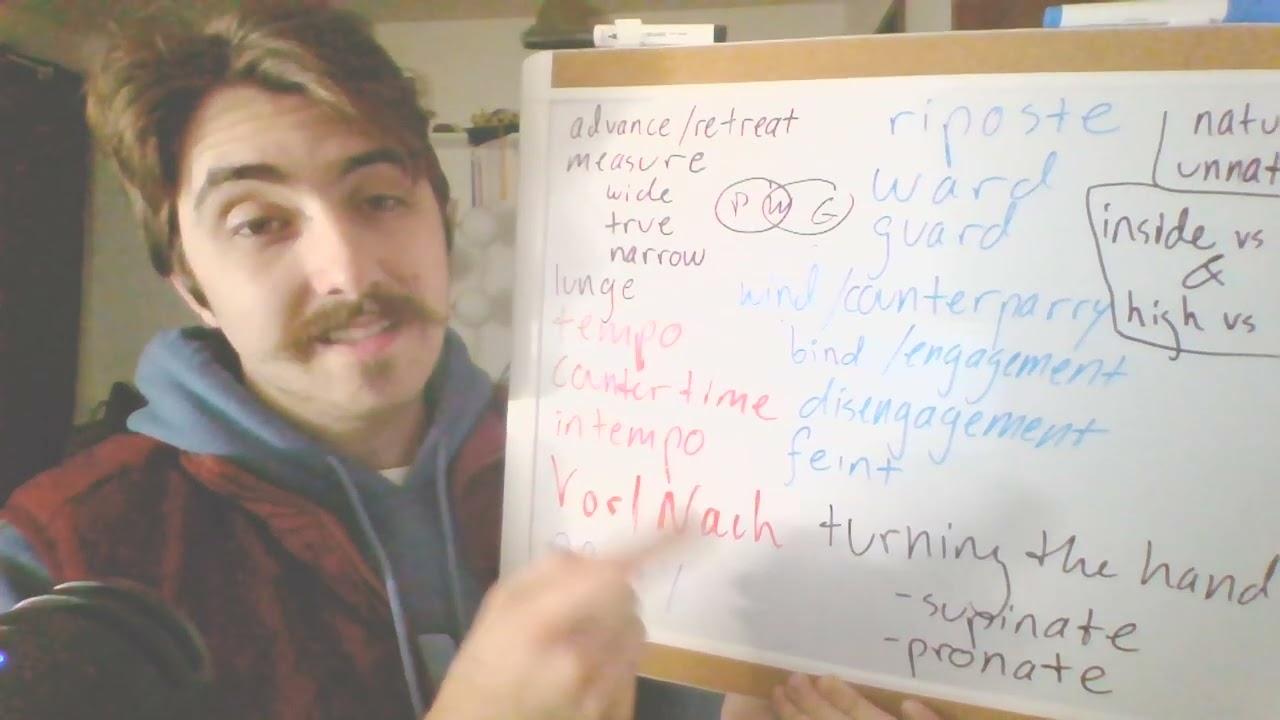 advance/retreat
measure
wide
true
narrow
lunge
tempo
countertime
in tempo
Vor/Nach
P W G
riposte
ward
guard
wind/counterparry
bind/engagement
disengagement
feint
turning the hand
-supinate
-pronate
natu
unnat
inside vs
&
high vs